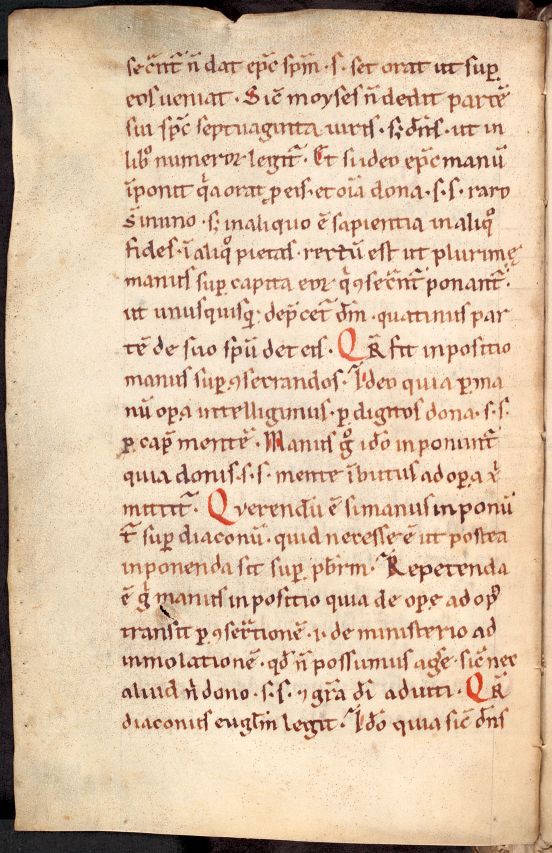 secr̄nt̄ n̄ dat ep̄c sp̄m · s · set orat ut sup̱
eos ueniat · Sic̄ moyses n̄ dedit partē
sui sp̄c septuaginta uiris · s; dn̄s · ut in
lib̄ numeror legit̄ · Et si ideo ep̄c manū
īponit q̄a orat ꝑ eis · et oīa dona · s · s · raro
s̄ in uno · s; in aliquo ē sapientia in aliq̊
fides · ī aliq̊ pietas · rectū est ut plurimę
manus sup̱ capita eor q̄ ꝯsecr̄nt̄ ponant̄ ·
ut unusquisq; dep̄cet̄ dm̄ · quatinus par
tē de suo sp̄u det eis · Q R̄ fit inpositio
manus sup̱ ꝯserrandos · Ideo quia ꝑ ma
nū oꝑa intelligimus · ꝑ digitos dona · s · s ·
ꝑ cap̄ mentē · Manus g̊ id̄o inponunt̄
quia donis · s · s · mente ībutus ad oꝑa ꝑ
mittit̄ · Querendū ē si manus inponū
t̄ sup̱ diaconū · quid neresse ē ut postea
inponenda sit sup̱ pb̄rm · Repetenda
ē g̊ manus inpositio quia de opę ad op᷒
transit ꝑ ꝯsecr̄tionē · i · de ministerio ad
inmolationē · qd̄ n̄ possumus age̅ · sic̄ nec
aliud n̄ dono · s · s · ⁊ gr̄a dī adiuti · Q R̄
diaconus eugl̄m legit · Id̄o quia sic̄ dn̄s